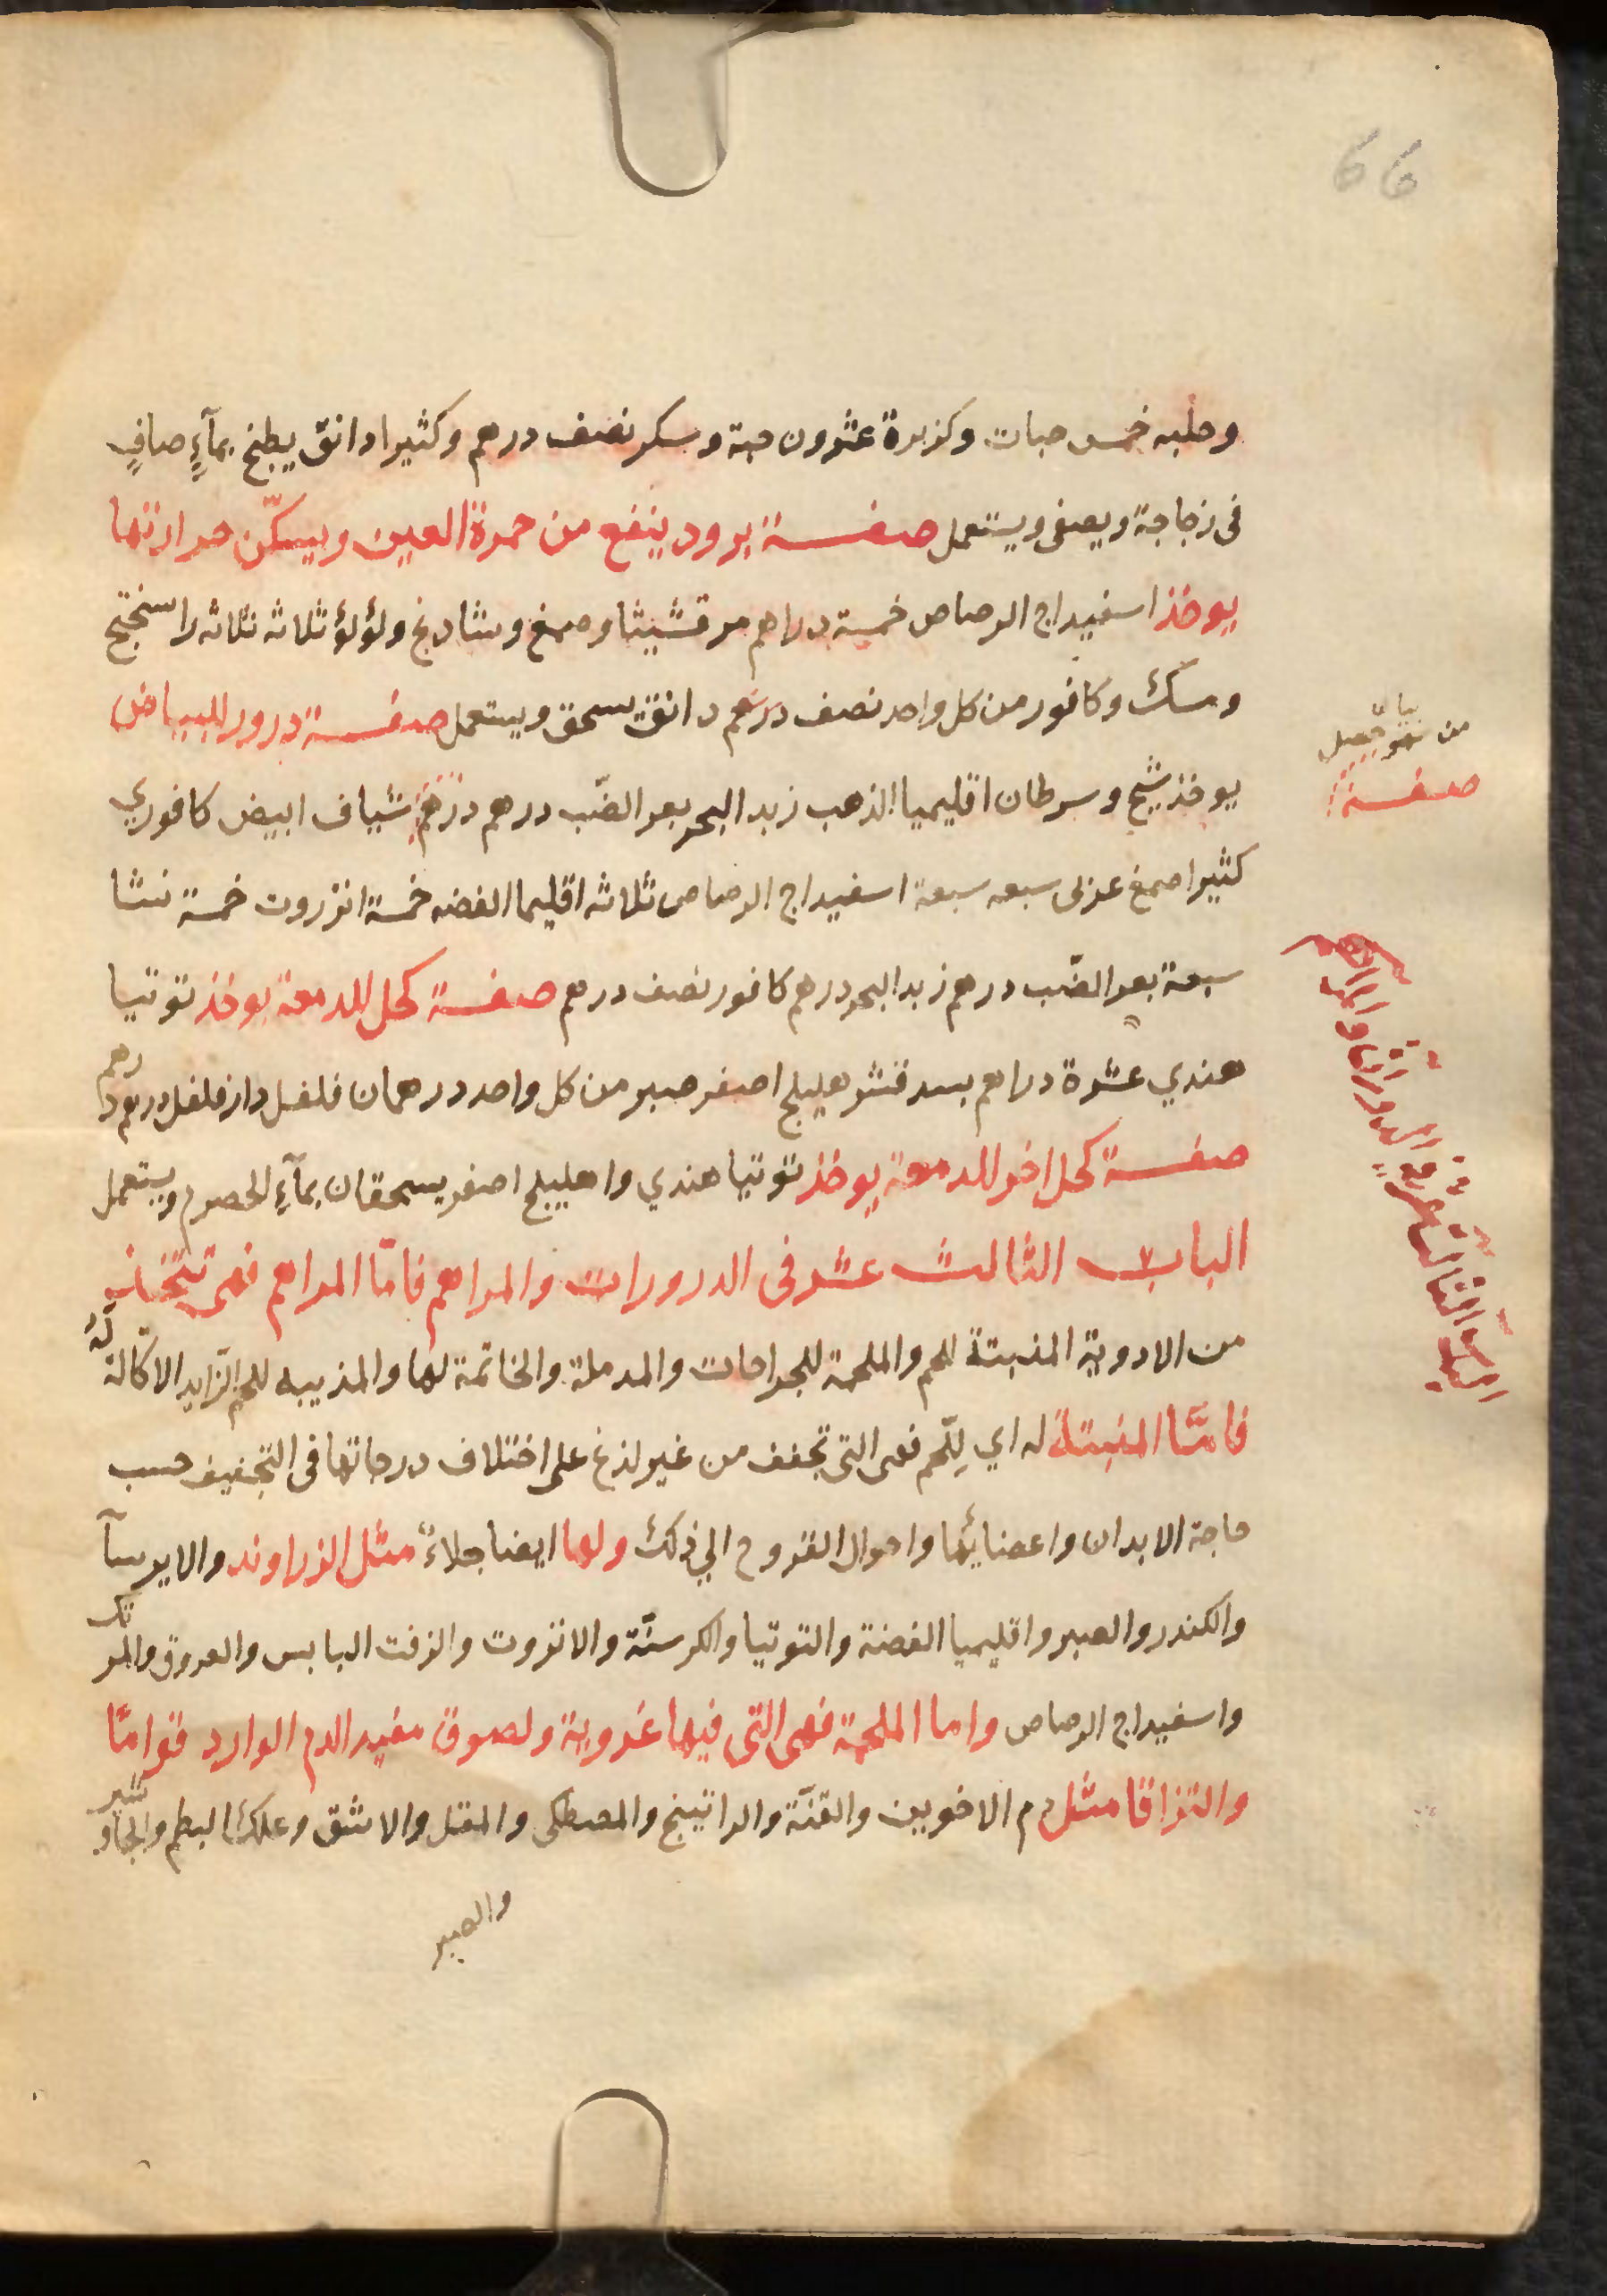 66
وحلبه خمس حبات وكزبرة عشرون حبة وسكر نصف درهم وكثيرا دانق يطبخ بمآءٍ صافٍ
فى زجاجة ويصفى ويستعمل صفــة برود ينفع من حمرة العين ويسكّن حرارتها
يوخذ اسفيداج الرصاص خمسة دراهم مرقشيثا وصمغ وشادنج ولؤلؤ ثلاثه ثلاثه راسختج
ومسك وكافور من كل واحد نصف درهم دانق يسحق ويستعمل صفــة درور للبياض
يوخذ شيح وسرطان اقليميا الذهب زبد البحر بعر الضّب درهم درهم شياف ابيض كافوري
كثيرا صمغ عربى سبعه سبعة اسفيداج الرصاص ثلاثه اقليما الفضه خمسة انزروت خمسة نشا
سبعة بعر الضّب درهم زبد البحر درهم كافور نصف درهم صفــة كحل للدمعة يوخذ توتيا
هندي عشرة دراهم بسد قشر هليلج اصفر صبر من كل واحد درهمان فلفل دار فلفل درهم درهم
صفــة كحل اخر للدمعة يوخذ توتيا هندي واهليلج اصفر يسحقان بمآءِ الحصرم ويستعمل
الباب الثالث عشر فى الدرورات والمراهم فامّا المراهم فهى تتخذ
من الادوية المنبتة للحم والملحمة للجراحات والمدملة والخاتمة لها والمذيبه للحم الزايد الاكالة لهُ
فامّا المنبتة له اي لِلّحم فهى التى تجفف من غير لذغ على اختلاف درجاتها فى التجفيف حسب
حاجة الابدان واعضايُها واحوال القروح الي ذلك ولها ايضا جلاءً مثل الزراوند والايرسآ
والكندر والصبر واقليميا الفضة والتوتيا والكرسنّة والانزروت والزفت اليابس والعروق والمرتك
واسفيداج الرصاص واما الملحمة فهى التى فيها غروية ولصوق مفيد الدم الوارد قوامًا
والتزاقا مثل دم الاخوين والقنّة والراتينج والمصطكى والمقل والاشق وعلك البطم والجاوشير
والصبر
من
صفــة
الباب الثالث عشر فى الدرورات والمراهم